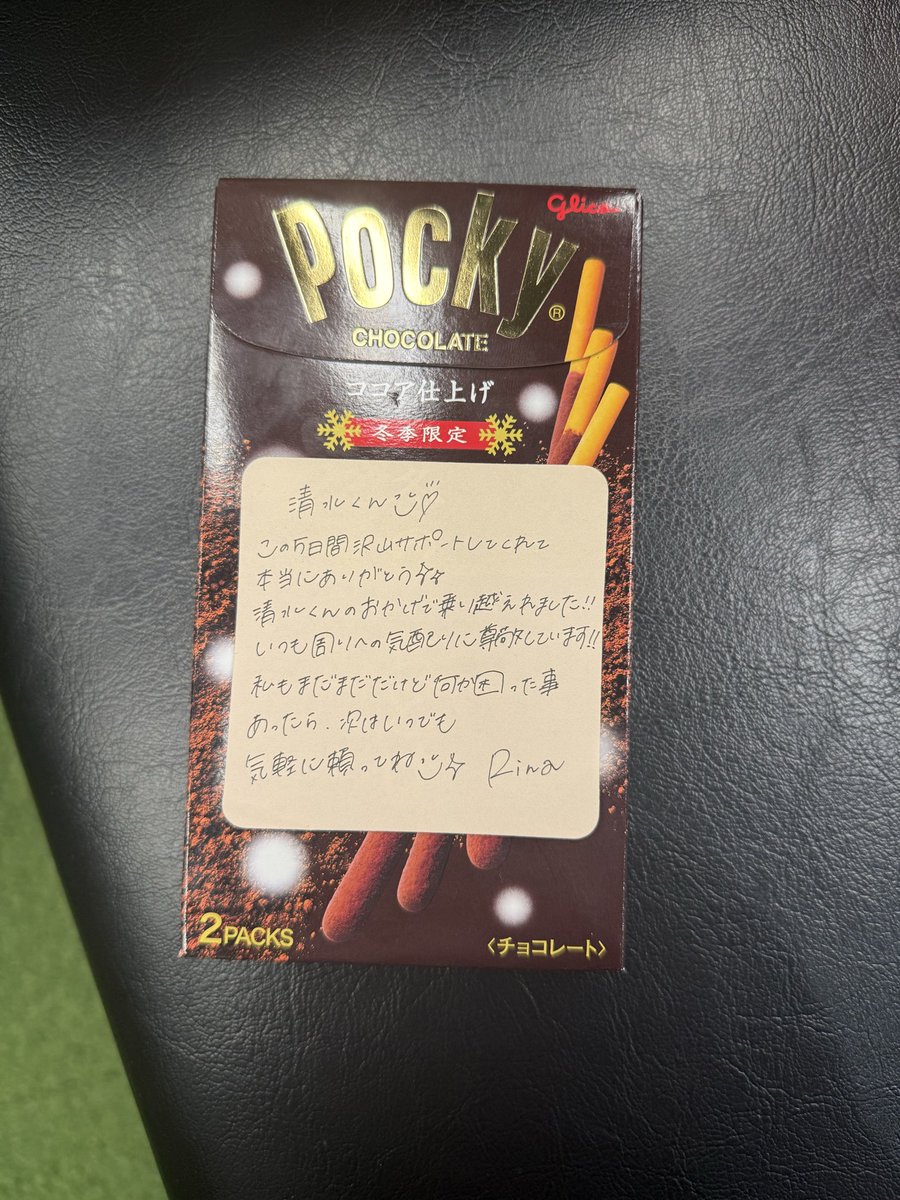 glico
Pocky®
CHOCOLATE
ココア仕上げ
冬季限定
清水くん
この5日間沢山サポートしてくれて
本当にありがとう
清水くんのおかげで乗り越えれました!!
いつも周りへの気配りに尊敬しています!!
私もまだまだだけど何か困った事
あったら、次はいつでも
気軽に頼ってね Rina
2PACKS
〈チョコレート〉